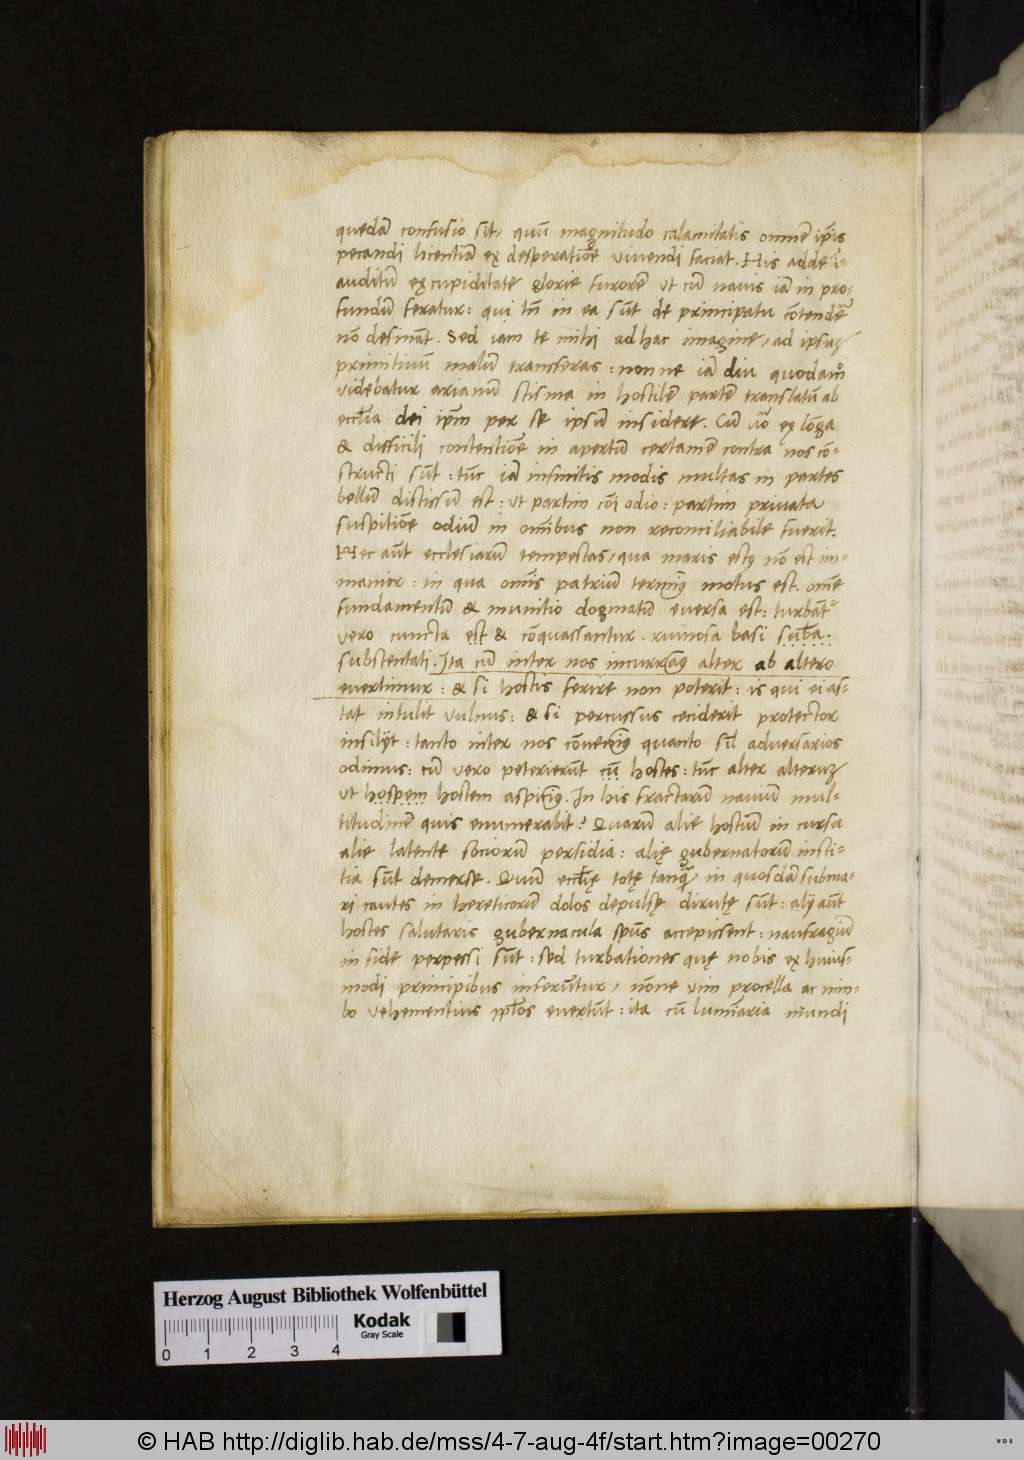 quedā confusio sit, quū magnitudo calamitatis omnē ip̄is
peccandi licentiā ex desperatiōe vivendi faciat. His adde i-
auditū ex cupiditate glorie furorē ut cū navis iā in pro-
fundū feratur: qui tn̄ in ea sūt de principatu cōtendē
nō desināt. Sed iam te mihi ad hac imagine, ad ipsuꝫ
primitivū malū transferas: nonne iā diu quodam
videbatur arianū scisma in hostilē partē translatū ab
eccl̄ia dei ip̄m per se ipsum insidere. Cū v̄o ex lōga
& difficili contentiōe in apertū certamē contra nos cō-
structi sūt: tūc iā infinitis modis multas in partes
bellū distissū est: ut partim cōi odio: partim privata
suspitiōe odiū in omībus non reconciliabile fuerit.
Hec aūt ecclesiarū tempestas, qua maris estꝰ nō est im-
manior: in qua omīs patrium terminꝰ motus est. omē
fundamentū & munitio dogmatū eversa est: turbāt᷑
vero cuncta est & cōquassantur. ruinosa basi sub̄a.
substentati. Ita cū inter nos incurrimꝰ alter ab altero
evertimur: & si hostis ferire non poterit: is qui ei as-
tat intulit vulnus: & si percussus ceciderit protector
insilijt: tanto inter nos cōvenimꝰ quanto sīl adversarios
odimus: cū vero peterierūt cū hostes: tūc alter alteruꝫ
ut hospem hostem aspicimꝰ. In his fractarū naviū mul-
titudinē quis enumerabit? Quarū alie hostiū in cursa
alie latente sociorū perfidia: alię gubernatorū insci-
tia sūt demerse. Quum eccl̄ię totę tanq̄ in quosdā subma-
ri cautes in hereticorū dolos depulsę dirutę sūt: alij aūt
hostes salutaris gubernacula sp̄us accepissent: naufragiū
in fide perpessi sūt: sed turbationes quę nobis ex huius-
modi principibus inferūtur, nōne vim procella ac nim-
bo vehementius ip̄los evertūt: ita cū luminaria mundi
Herzog August Bibliothek Wolfenbüttel
Kodak
Gray Scale
0 1 2 3 4
© HAB http://diglib.hab.de/mss/4-7-aug-4f/start.htm?image=00270
WDB